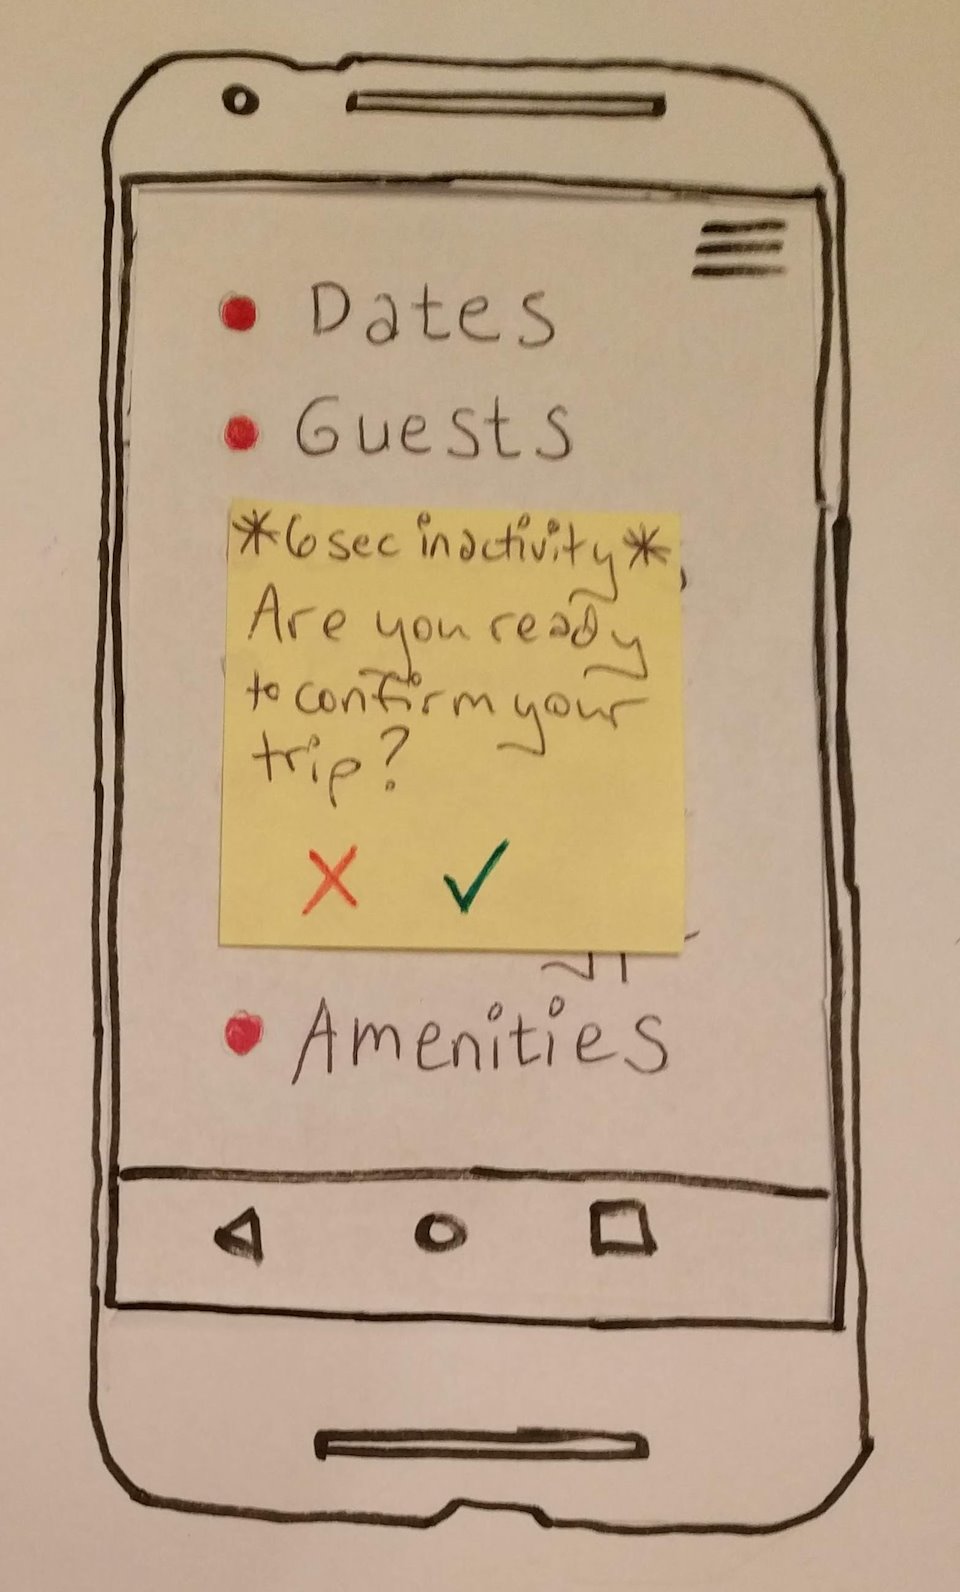 Dates
Guests
*6 sec inactivity*
Are you ready
to confirm your
trip?
Amenities